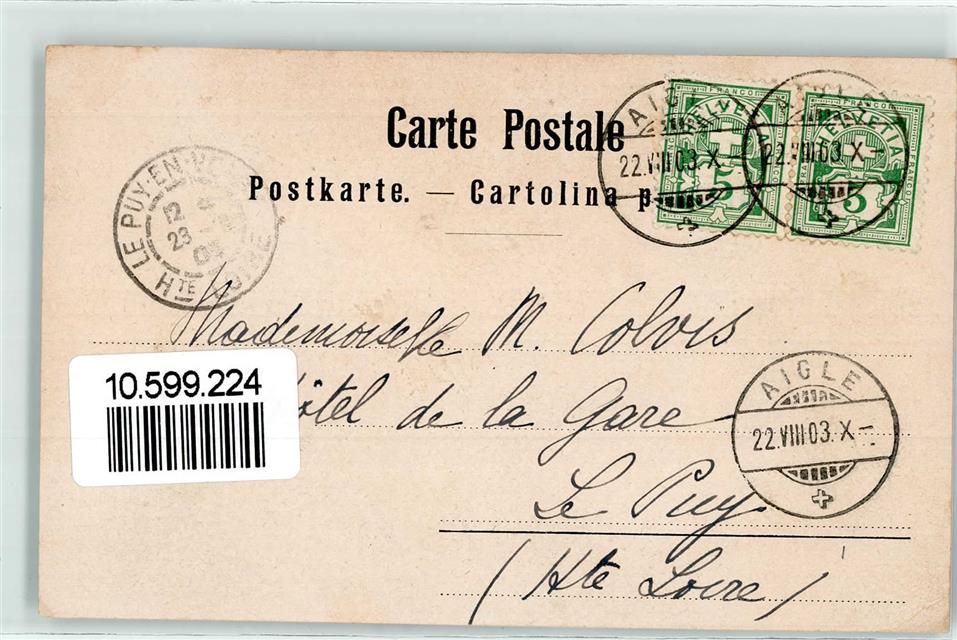 Carte Postale
Postkarte. — Cartolina p
AIGLE
22.VIII.03.X-
FRANCO
HELVETIA
5
22.VIII.03.X-
FRANCO
HELVETIA
5
LE PUY-EN-
12
23
03
HTE LOIRE
Mademoiselle M. Colvis
10.599.224
ôtel de la Gare
AIGLE
22.VIII.03.X-
Le Puy
(Hte Loire)